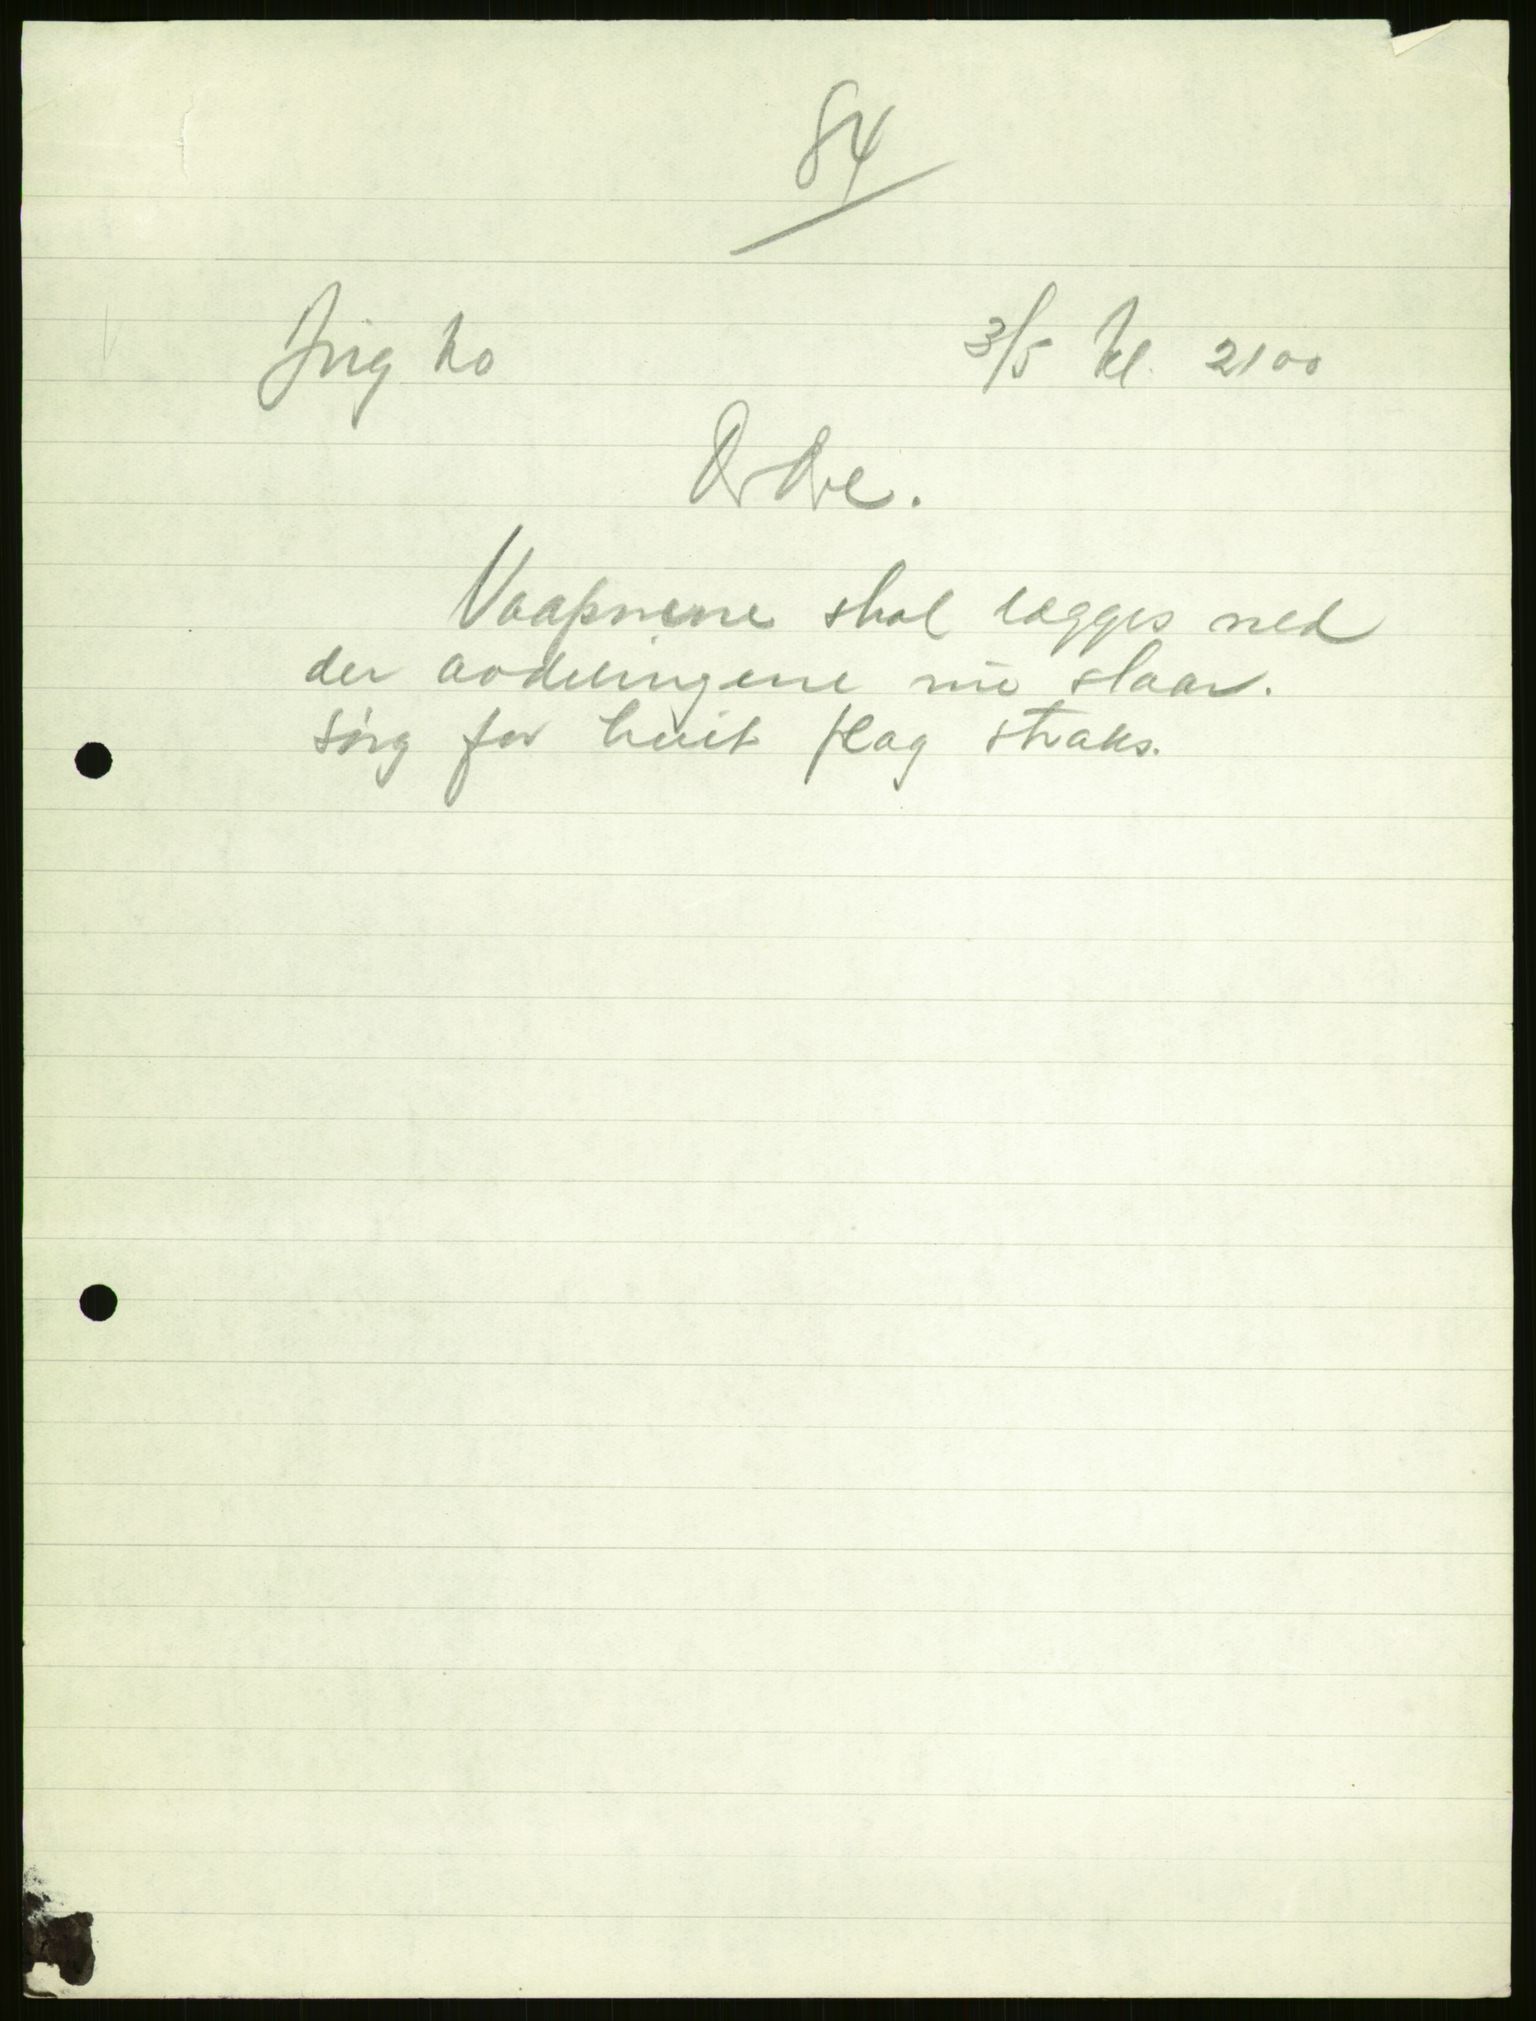 84
Brig ko 3/5 kl. 2100
Ordre.
Vaapnene skal lægges ned
der avdelingene nu staar.
Sörg for hvit flag straks.